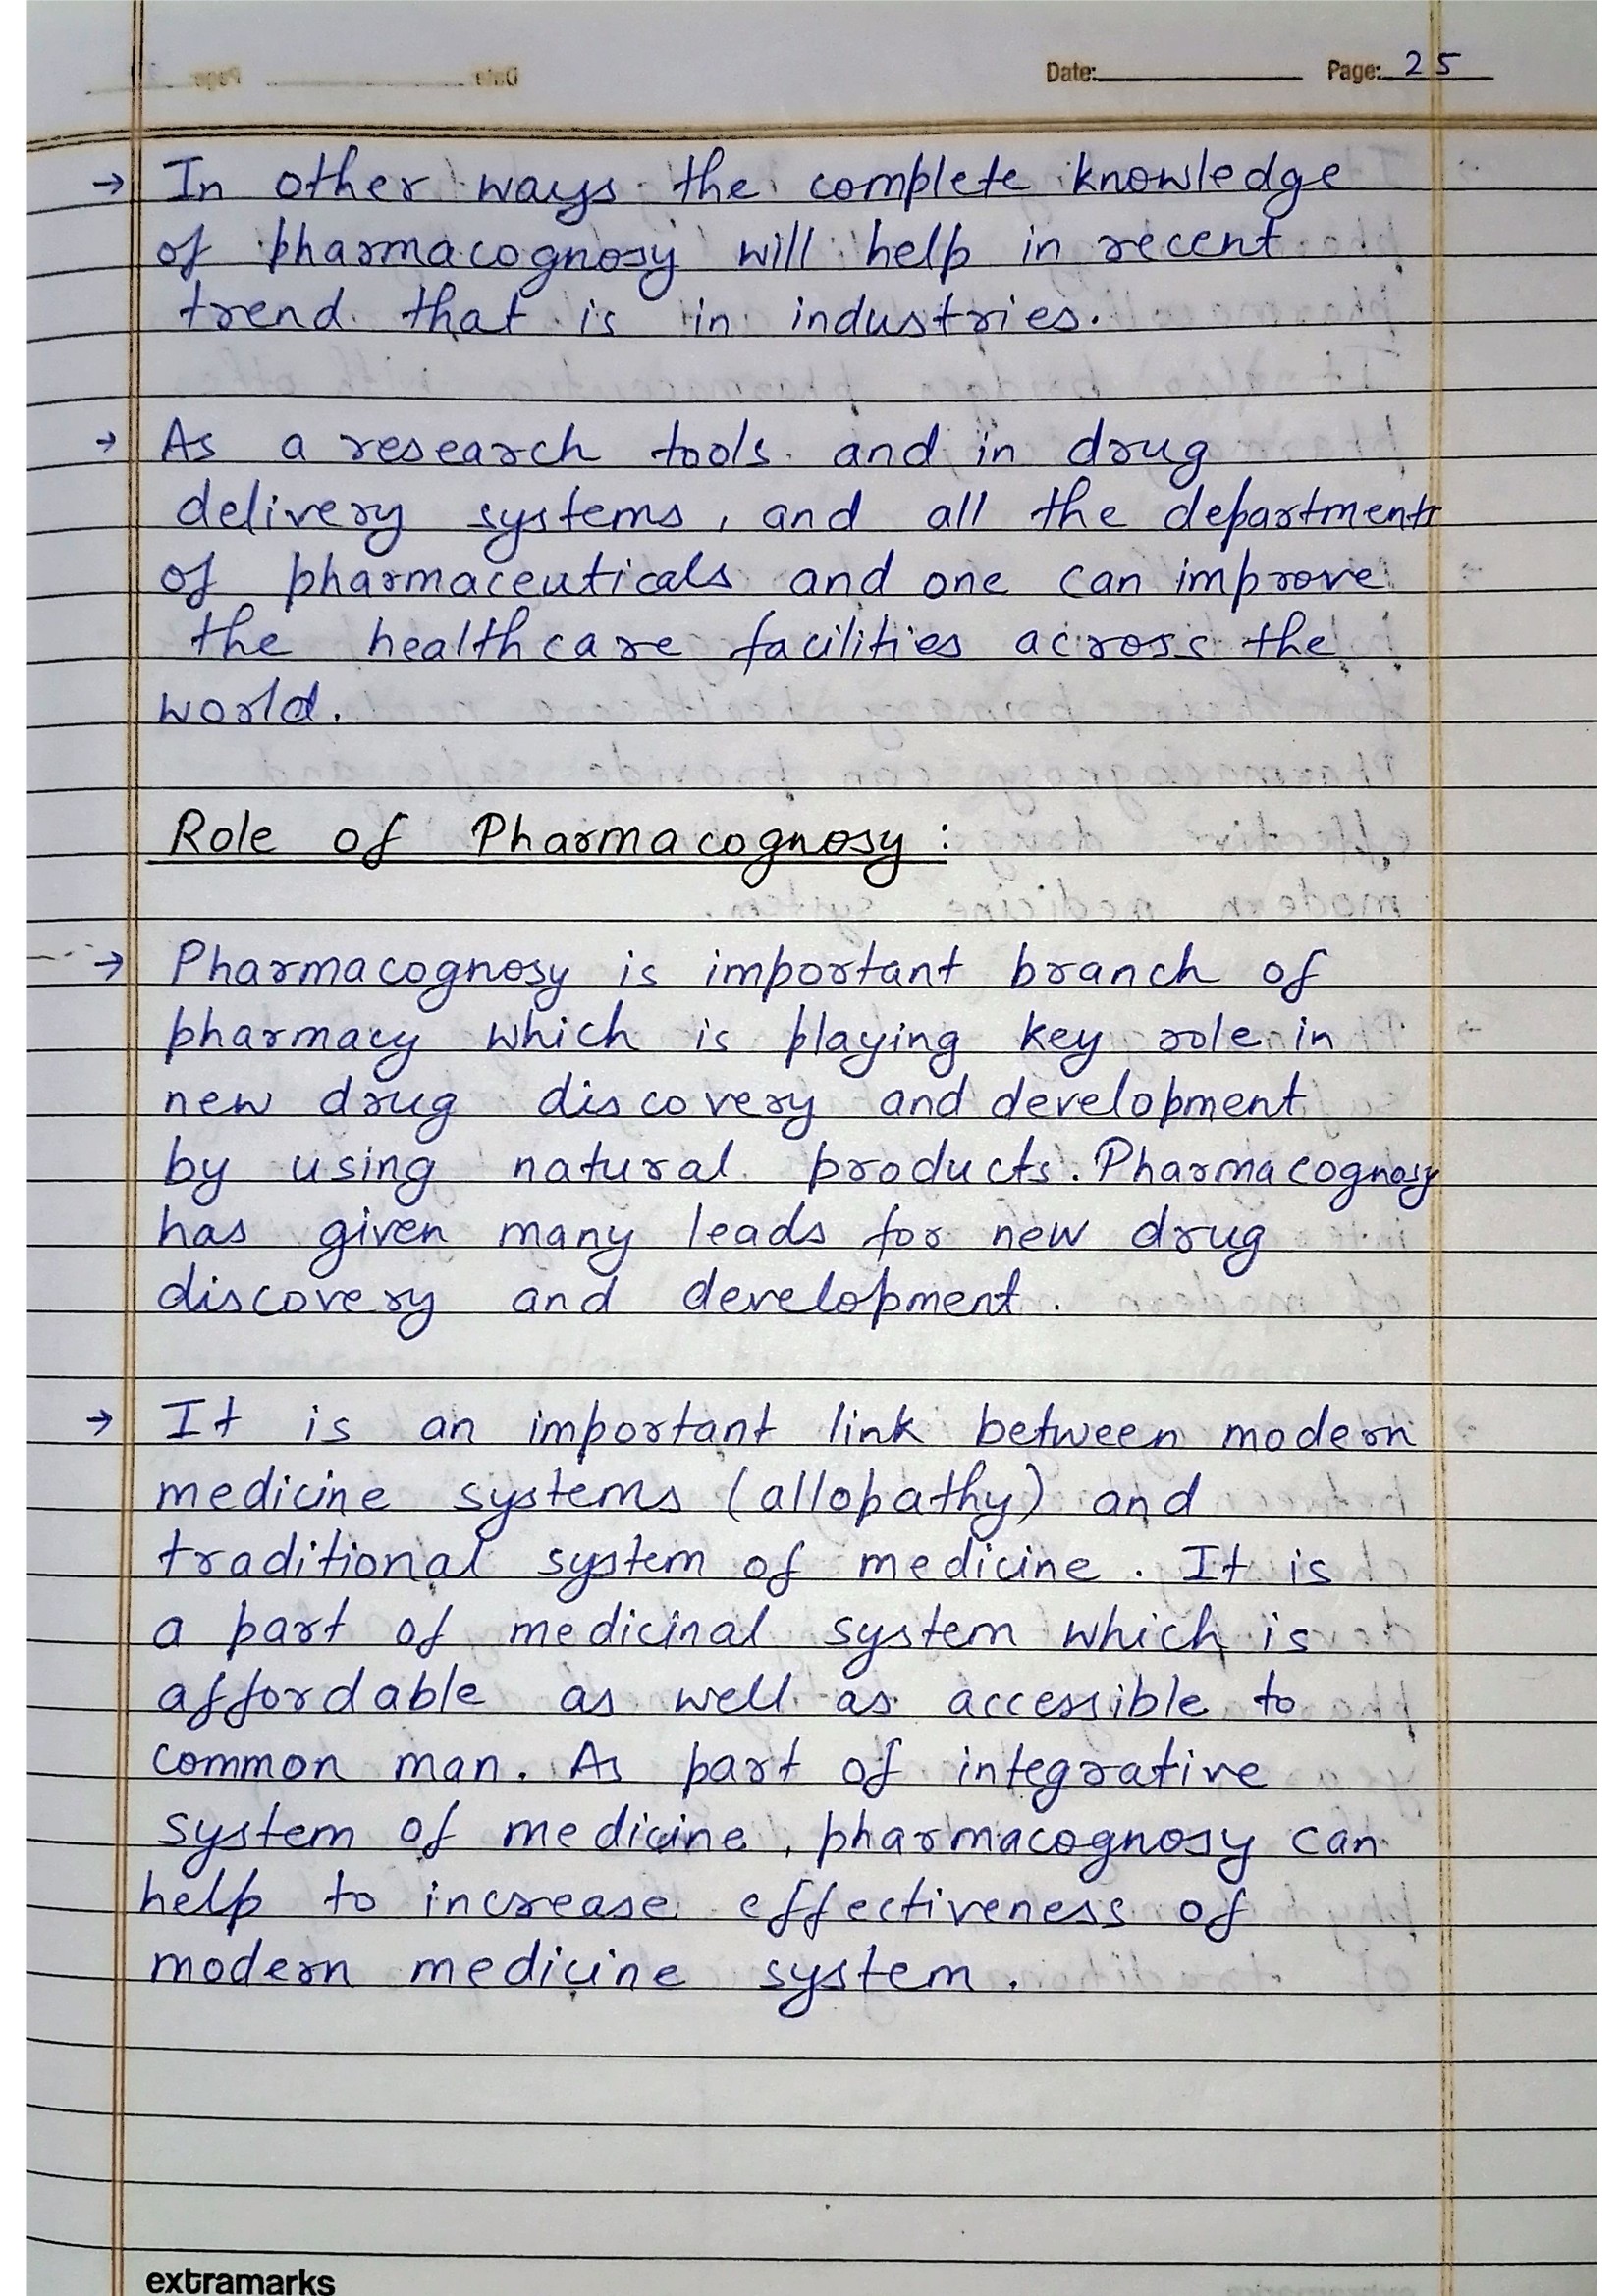 Date: Page: 25
→ In other ways the complete knowledge
of pharmacognosy will help in recent
trend that is in industries.
→ As a research tools and in drug
delivery systems, and all the departments
of pharmaceuticals and one can improve
the healthcare facilities across the
world.
Role of Pharmacognosy:
→ Pharmacognosy is important branch of
pharmacy which is playing key role in
new drug discovery and development
by using natural products. Pharmacognosy
has given many leads for new drug
discovery and development.
→ It is an important link between modern
medicine systems (allopathy) and
traditional system of medicine. It is
a part of medicinal system which is
affordable as well as accessible to
common man. As part of integrative
system of medicine, pharmacognosy can
help to increase effectiveness of
modern medicine system.
extramarks